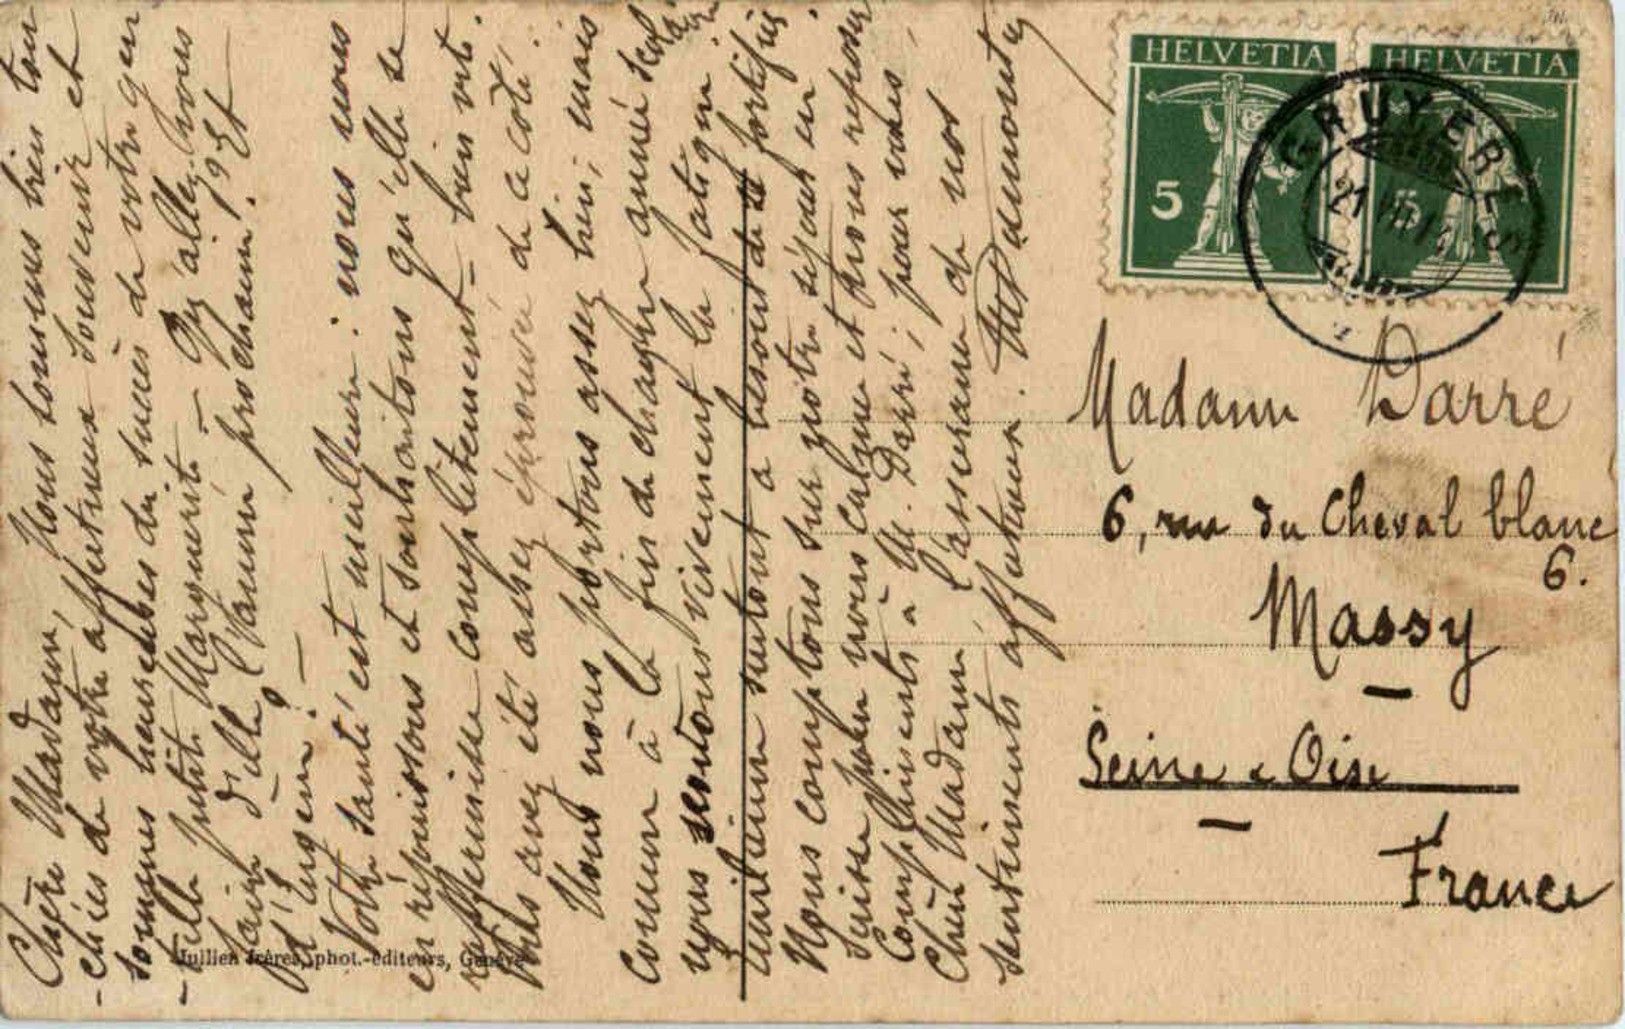 Chère Madame, Nous sommes bien tou
-chées de votre affectueux souvenir et
sommes heureuses du succès de votre gen
-tille petite Marguerite — Qu'allez-vous
faire d'elle l'année prochaine. 1° Et
d'Eugène? —
Votre santé est meilleure: nous nous
en réjouissons et souhaitons qu'elle se
raffermisse complètement — bien vite.
Vous avez été assez éprouvée de ce côté.
Nous nous portons assez bien, mais
comme à la fin de chaque année scolaire
nous sentons vivement la fatigue.
surtout a besoin de se fortifier
Nous comptons sur notre séjour en
Suisse pour nous calme et nous reposer
Compliments à M. Darré; pour vous,
Chère Madame l'assurance de nos
sentiments affectueux.
Jullien frères, phot.-éditeurs, Genève
HELVETIA
5
HELVETIA
5
GRUYÈRES
21 VII
Madame Darré
6, rue du Cheval blanc
6.
Massy
Seine & Oise
France